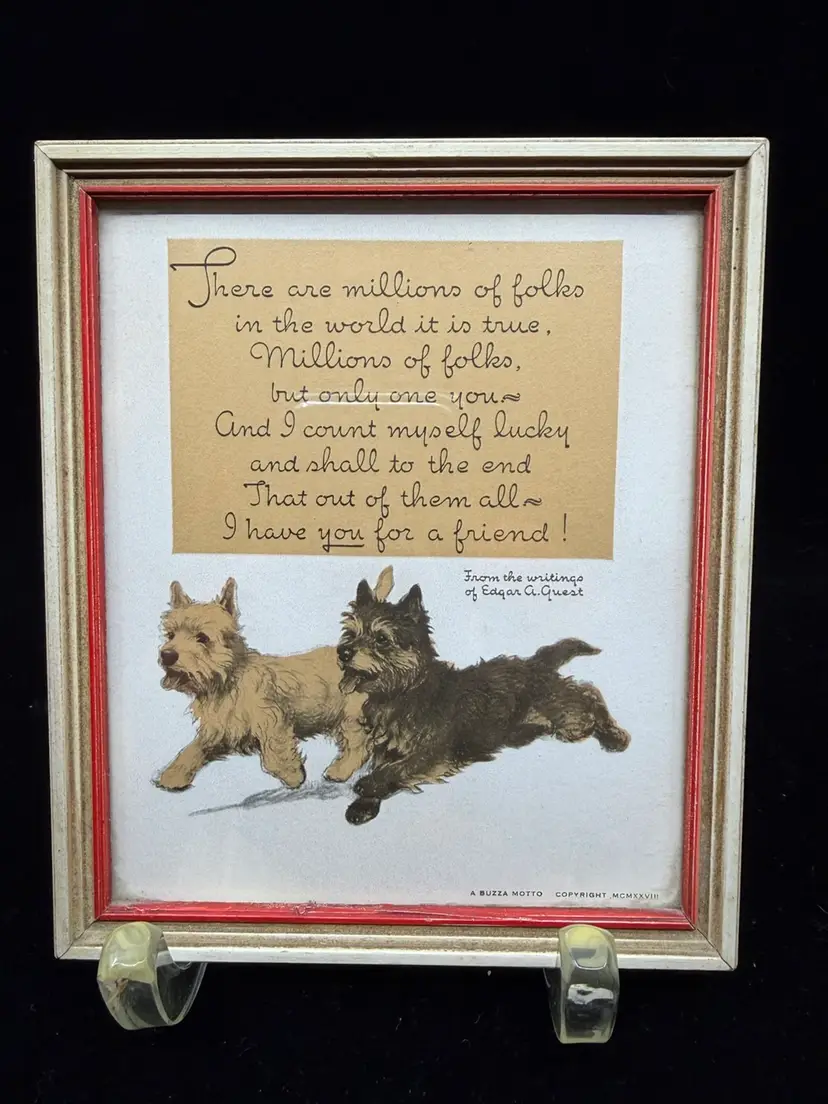 There are millions of folks
in the world it is true,
Millions of folks,
but only one you~
And I count myself lucky
and shall to the end
That out of them all~
I have you for a friend!
From the writings
of Edgar A. Guest
A BUZZA MOTTO COPYRIGHT MCMXXVIII